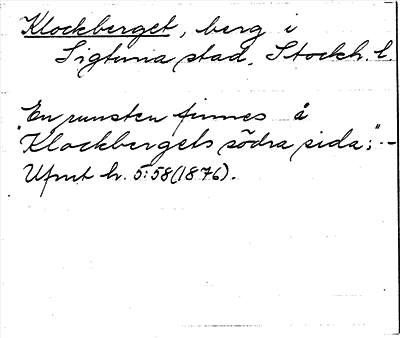 Klockberget, berg i
Sigtuna stad, Stockh. l.
En runsten finnes å
"Klockbergets södra sida;" -
Ufmt h. 5:58 (1876).